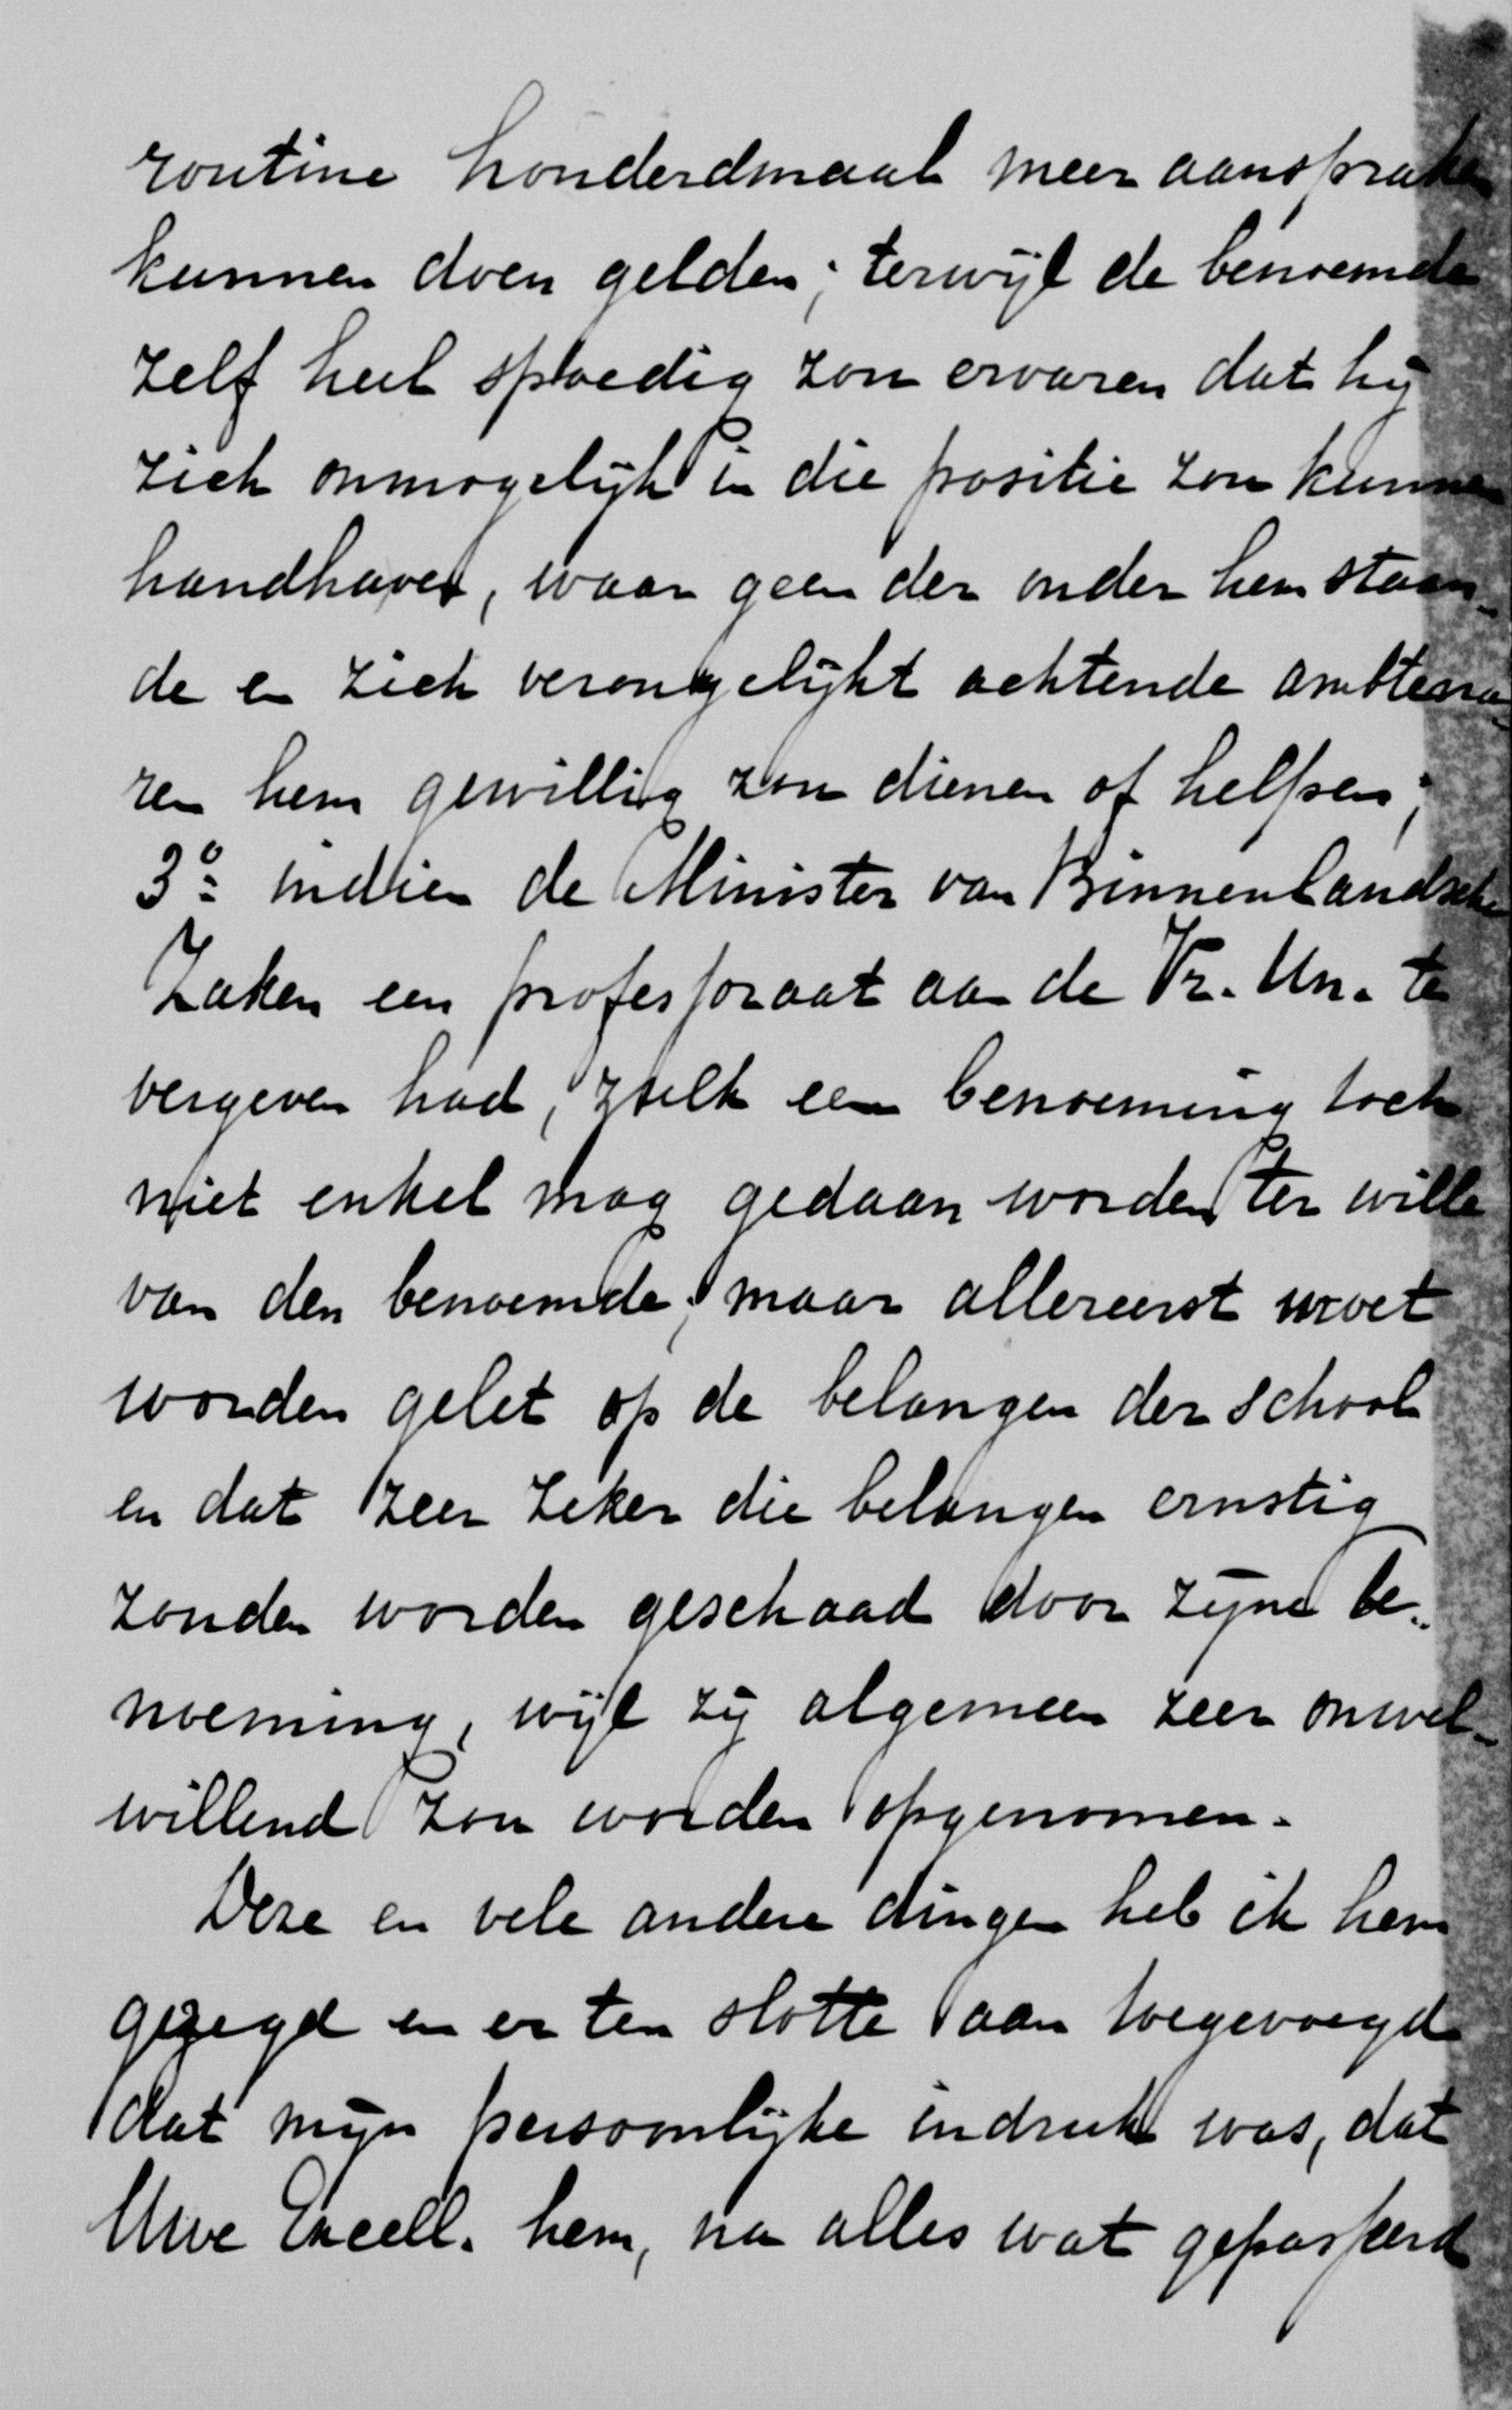 routine honderdmaal meer aanspraken
kunnen doen gelden; terwijl de benoemde
zelf heel spoedig zou ervaren dat hij
zich onmogelijk in die positie zou kunnen
handhaven, waar geen der onder hem staan-
de en zich verongelijkt achtende ambtena-
ren hem gewillig zou dienen of helpen;
3o indien de Minister van Binnenlandsche
Zaken een professoraat aan de Vr. Un. te
vergeven had, zulk een benoeming toch
niet enkel mag gedaan worden ter wille
van den benoemde; maar allereerst moet
worden gelet op de belangen der school
en dat zeer zeker die belangen ernstig
zouden worden geschaad door zijne be-
noeming, wijl zij algemeen zeer onwel-
willend zou worden opgenomen.
Deze en vele andere dingen heb ik hem
gezegd en er ten slotte aan toegevoegd
dat mijn persoonlijke indruk was, dat
Uwe Excell. hem, na alles wat gepasseerd